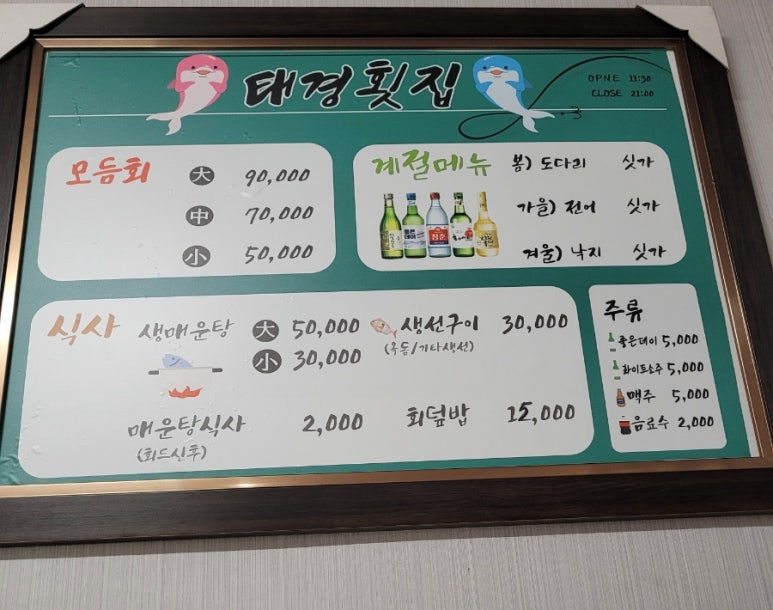 태경횟집
OPNE 11:30
CLOSE 21:00
모듬회
大 90,000
中 70,000
小 50,000
계절메뉴
봄) 도다리 싯가
가을) 전어 싯가
겨울) 낙지 싯가
식사
생매운탕 大 50,000
小 30,000
생선구이 30,000
(옥돔/기타생선)
매운탕식사 2,000
(회드신후)
회덮밥 15,000
주류
좋은데이 5,000
화이트소주 5,000
맥주 5,000
음료수 2,000